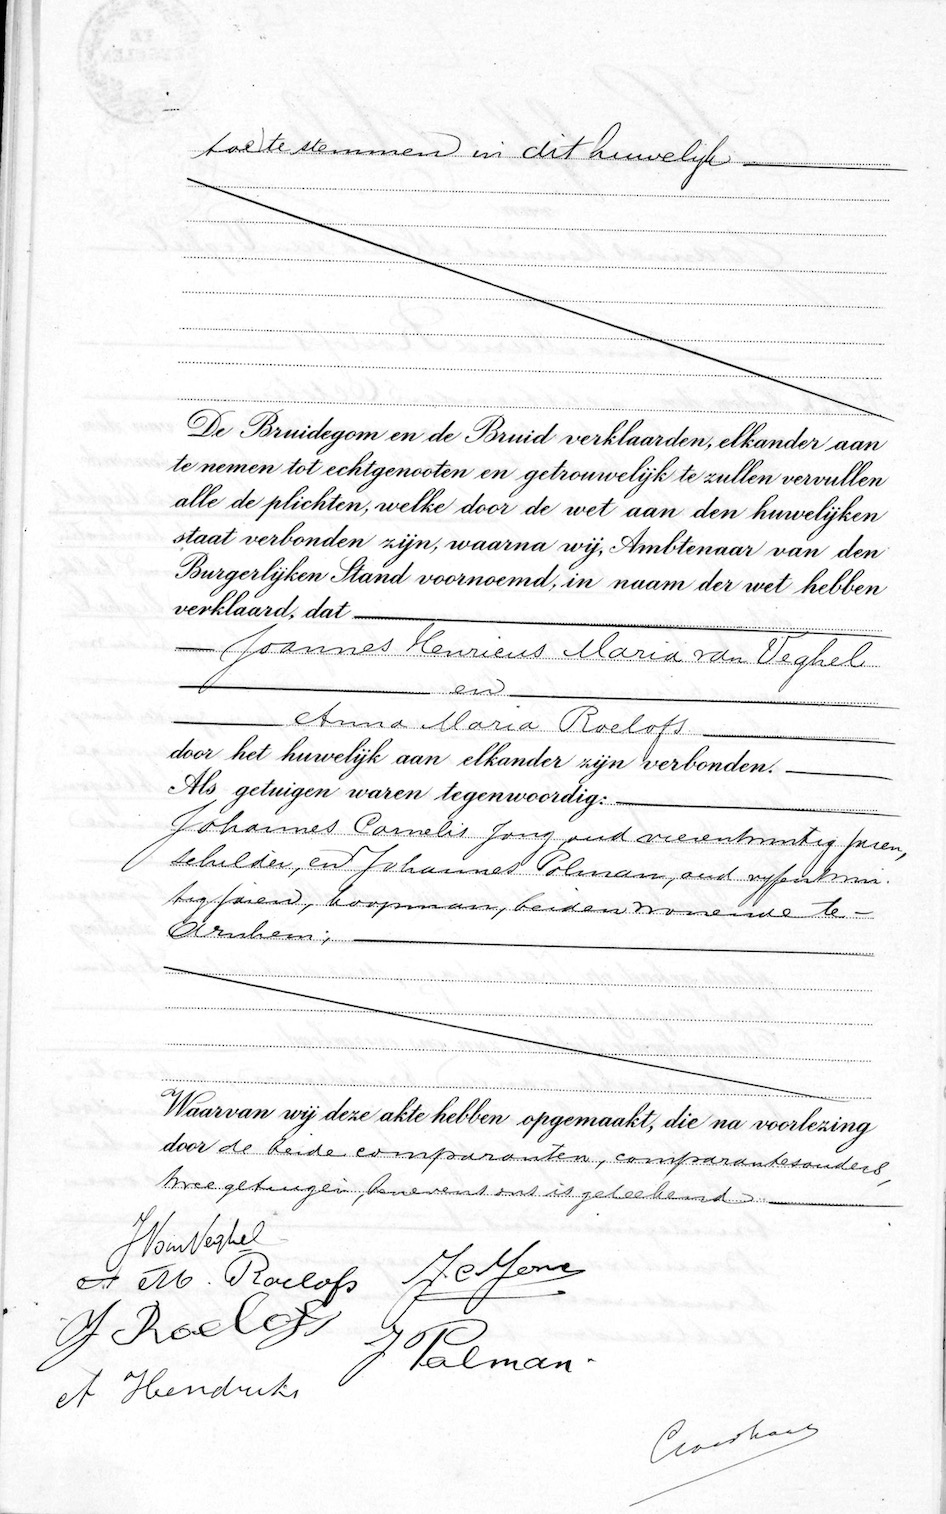 toe te stemmen in dit huwelijk
De Bruidegom en de Bruid verklaarden, elkander aan
te nemen tot echtgenooten en getrouwelijk te zullen vervullen
alle de plichten, welke door de wet aan den huwelijken
staat verbonden zijn, waarna wij, Ambtenaar van den
Burgerlijken Stand voornoemd, in naam der wet hebben
verklaard, dat
Joannes Henricus Maria van Veghel
en
Anna Maria Roelofs
door het huwelijk aan elkander zijn verbonden.
Als getuigen waren tegenwoordig:
Johannes Cornelis Jong, oud vierentwintig jaren,
schilder, en Johannes Polman, oud vyfentwin-
tig jaren, koopman, beiden wonende te
Arnhem;
Waarvan wij deze akte hebben opgemaakt, die na voorlezing
door de beide comparanten, comparantes ouders,
twee getuigen, benevens ons is geteekend
J Van Veghel
A M. Roelofs
J Roelofs
A Hendriks
J. C. Jong
J Polman.